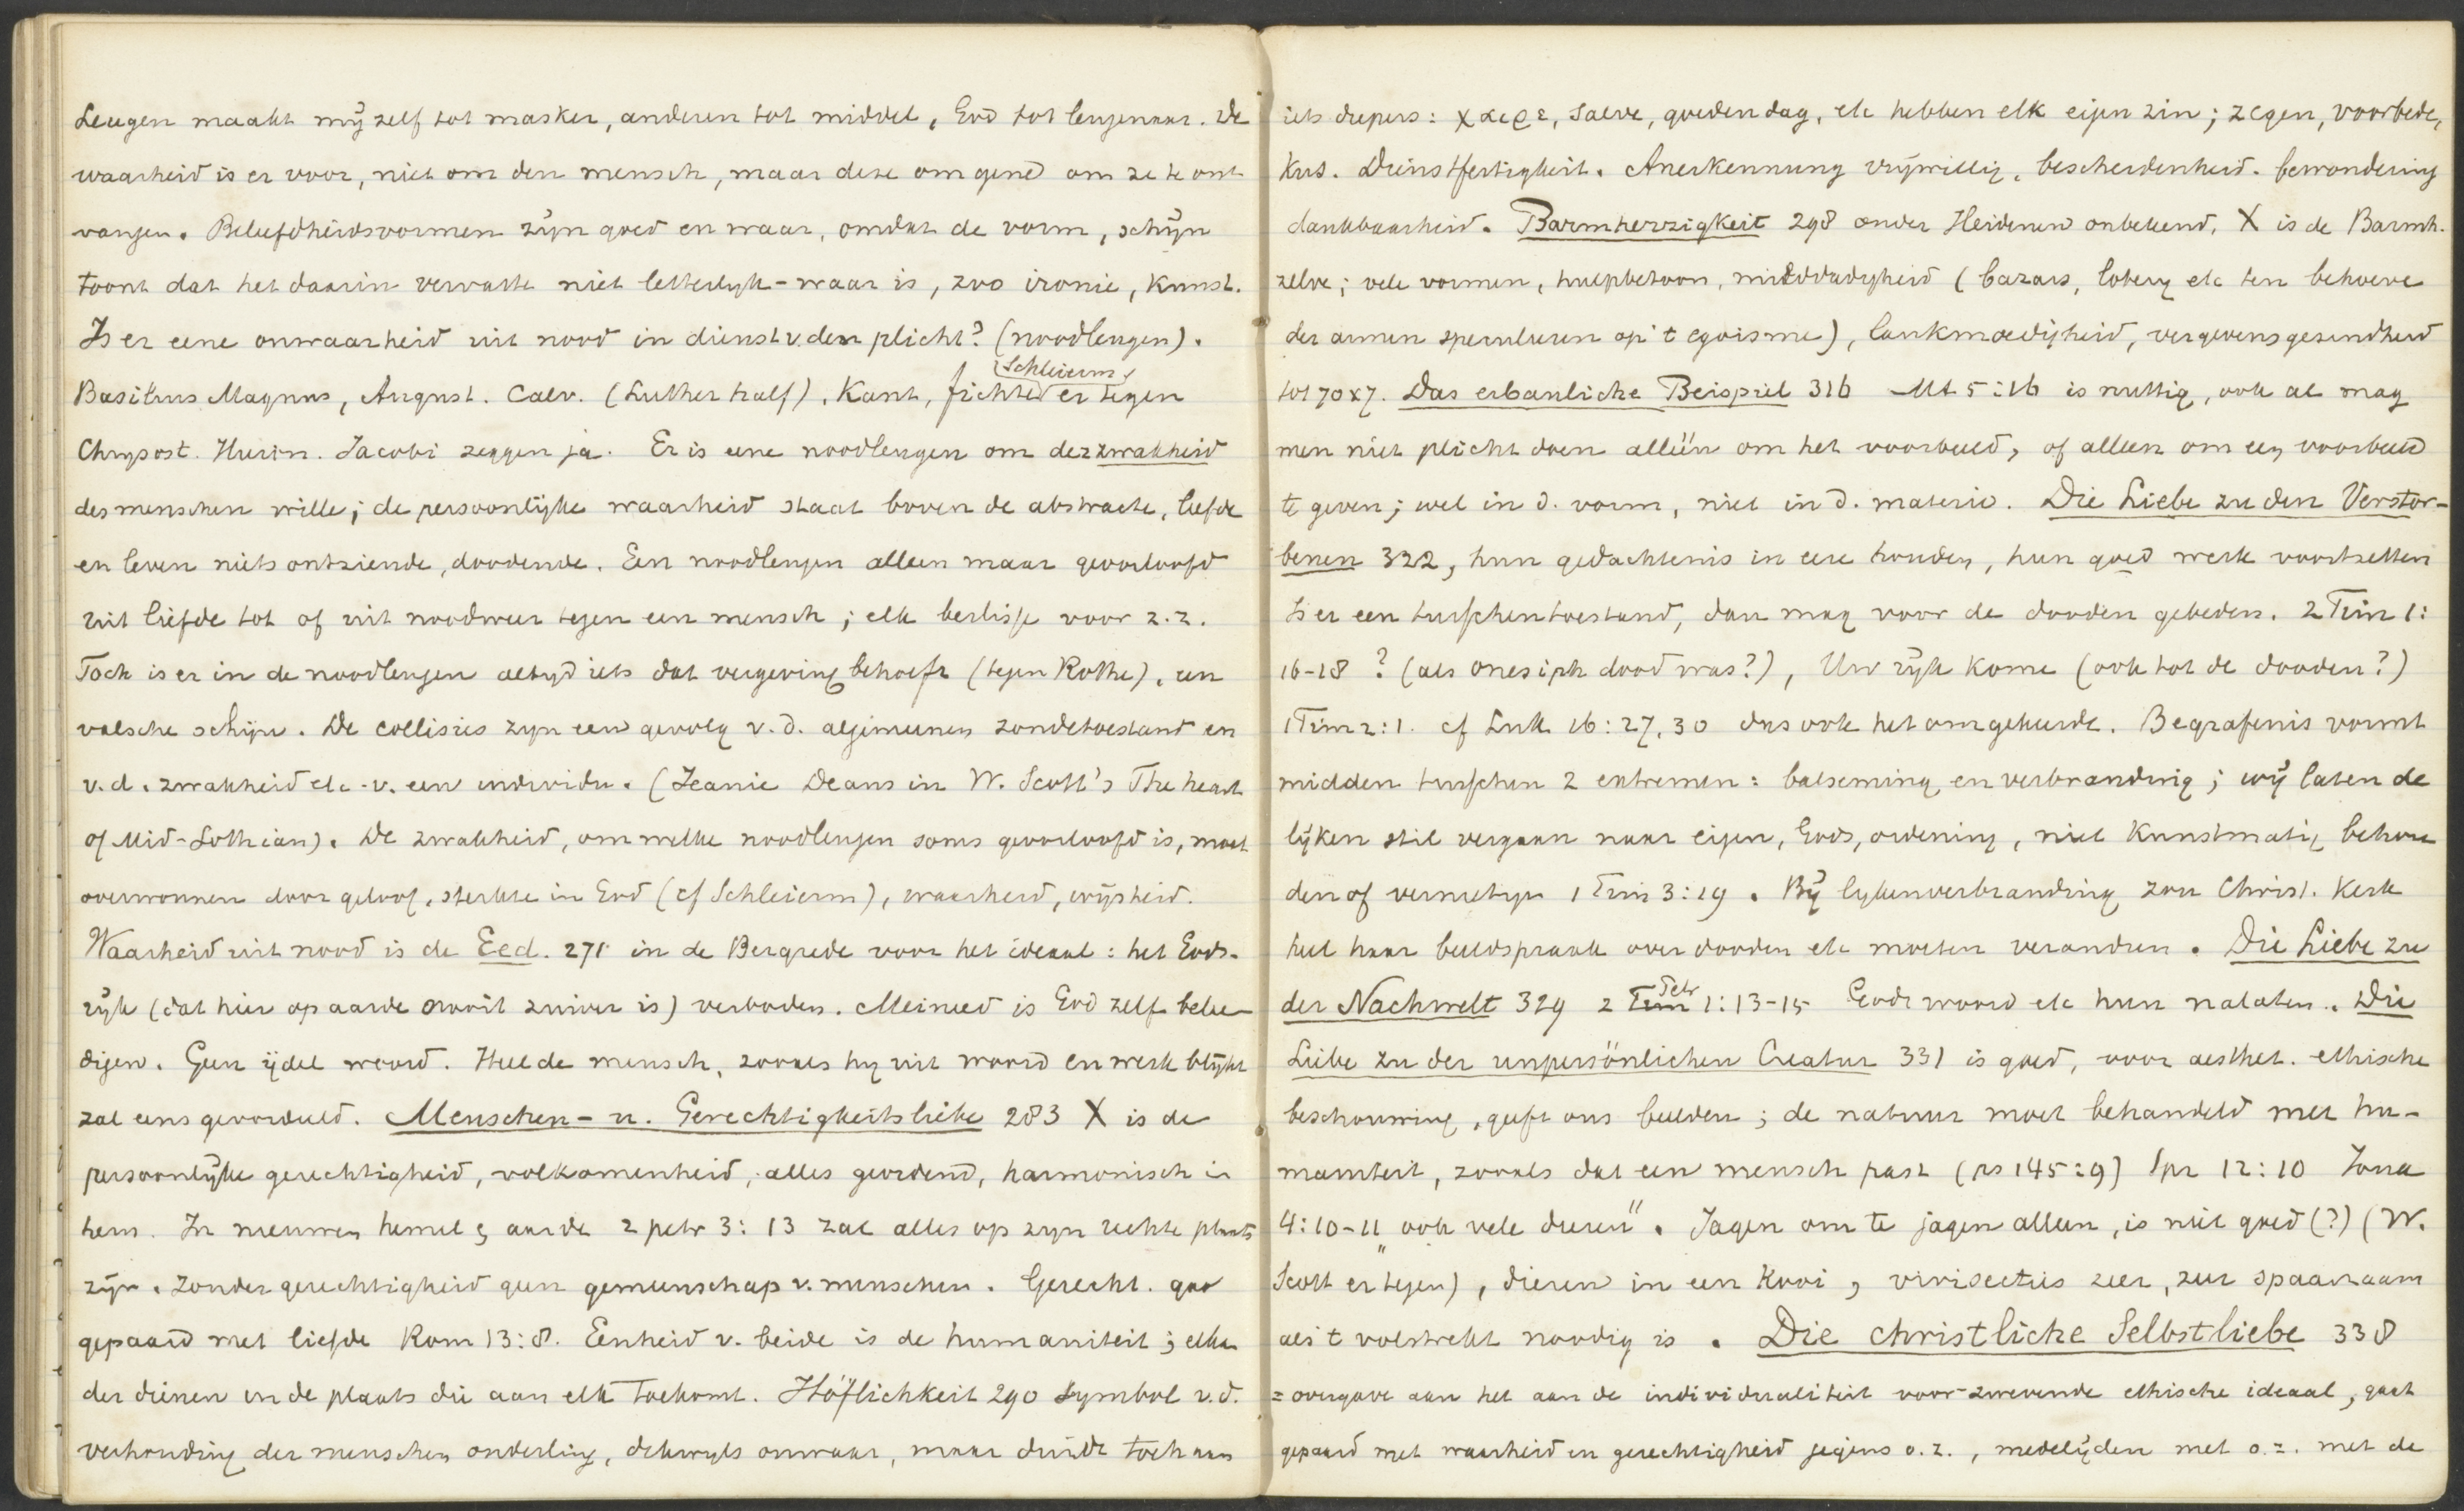 Leugen maakt mij zelf tot masker, anderen tot middel, God tot leugenaar. De
waarheid is er voor, niet om den mensch, maar deze om gene om ze te ont
vangen. Beleefdheidsvormen zijn goed en waar, omdat de vorm, schijn
toont dat het daarin vervatte niet letterlyk-waar is, zoo ironie, kunst.
Is er eene onwaarheid uit nood in dienst v. den plicht? (noodleugen).
Basilius Magnus, August. Calv. (Luther half), Kant, Fichte (Schleierm) er tegen
Chrysost. Hieron. Jacobi zeggen ja. Er is eene noodleugen om der zwakheid
des menschen wille; de persoonlijke waarheid staat boven de abstracte, liefde
en leven niets ontziende, doodende. Een noodleugen alleen maar geoorloofd
uit liefde tot of uit noodweer tegen een mensch; elk beslisse voor z.z.
Toch is er in de noodleugen altyd iets dat vergeving behoeft (tegen Rothe), een
valsche schijn. De collisies zyn een gevolg v.d. algemeenen zondetoestand en
v.d. zwakheid etc. v. een individu. (Jeanie Deans in W. Scott's The heart
of Mid-Lothian). De zwakheid, om welke noodleugen soms geoorloofd is, moet
overwonnen door geloof, sterkte in God (cf Schleierm), waarheid, wijsheid.
Waarheid uit nood is de Eed. 271 in de Bergrede voor het ideaal: het Gods-
rijk (dat hier op aarde nooit zuiver is) verboden. Meineed is God zelf belee-
digen. Geen ijdel woord. Heel de mensch, zooals hy uit woord en werk blijkt
zal eens geoordeeld. Menschen- u. Gerechtigkeitsliebe 283 X is de
persoonlijke gerechtigheid, volkomenheid, alles geordend, harmonisch in
hem. In nieuwen hemel & aarde 2 petr 3:13 zal alles op zyn rechte plaats
zijn. Zonder gerechtigheid geen gemeenschap v. menschen. Gerecht. gaa
gepaard met liefde Rom 13:8. Eenheid v. beide is de humaniteit; elkan
der dienen in de plaats die aan elk toekomt. Höflichkeit 290 symbol v.d.
verhouding der menschen onderling, dikwyls onwaar, maar duidt toch aan
iets diepers: χαιρε, salve, goeden dag, etc hebben elk eigen zin; zegen, voorbede,
kus. Dienstfertigkeit. Anerkennung vrijwillig, bescheidenheid. bewondering
dankbaarheid. Barmherzigkeit 298 onder Heidenen onbekend. X is de Barmh.
zelve; vele vormen, hulpbetoon, milddadigheid (bazars, lotery etc ten behoeve
der armen speculeeren op 't egoisme), lankmoedigheid, vergevensgezindheid
tot 70x7. Das erbauliche Beispiel 316 Mt 5:16 is nuttig, ook al mag
men niet plicht doen alléén om het voorbeeld, of alleen om een voorbeeld
te geven; wel in d. vorm, niet in d. materie. Die Liebe zu den Verstor-
benen 322, hun gedachtenis in eere houden, hun goed werk voortzetten
Is er een tusschentoestand, dan mag voor de dooden gebeden. 2 Tim 1:
16-18? (als Onesiph dood was?), Uw rijk kome (ook tot de dooden?)
1 Tim 2:1. cf Luk 16:27,30 dus ook het omgekeerde. Begrafenis vormt
midden tusschen 2 extremen: balseming en verbranding; wij laten de
lijken stil vergaan naar eigen, Gods, ordening, niet kunstmatig behou
den of vernietigen 1 Tim 3:19. Bij lykenverbranding zou Christ. kerk
heel haar beeldspraak over dooden etc moeten verandren. Die Liebe zu
der Nachwelt 329 2 Tim Petr 1:13-15 Gods woord etc hun nalaten. Die
Liebe zu der unpersönlichen Creatur 331 is goed, voor aesthet. ethische
beschouwing, geeft ons beelden; de natuur moet behandeld met hu-
maniteit, zooals dat een mensch past (ps 145:9) Spr 12:10 Jona
4:10-11 „ook vele dieren". Jagen om te jagen alleen, is niet goed (?) (W.
Scott er tegen), dieren in een kooi, vivisecties zeer, zeer spaarzaam
als 't volstrekt noodig is. Die christliche Selbstliebe 338
= overgave aan het aan de individualiteit voor-zwevende ethische ideaal, gaat
gepaard met waarheid en gerechtigheid jegens o.z., medelijden met o.z. met de